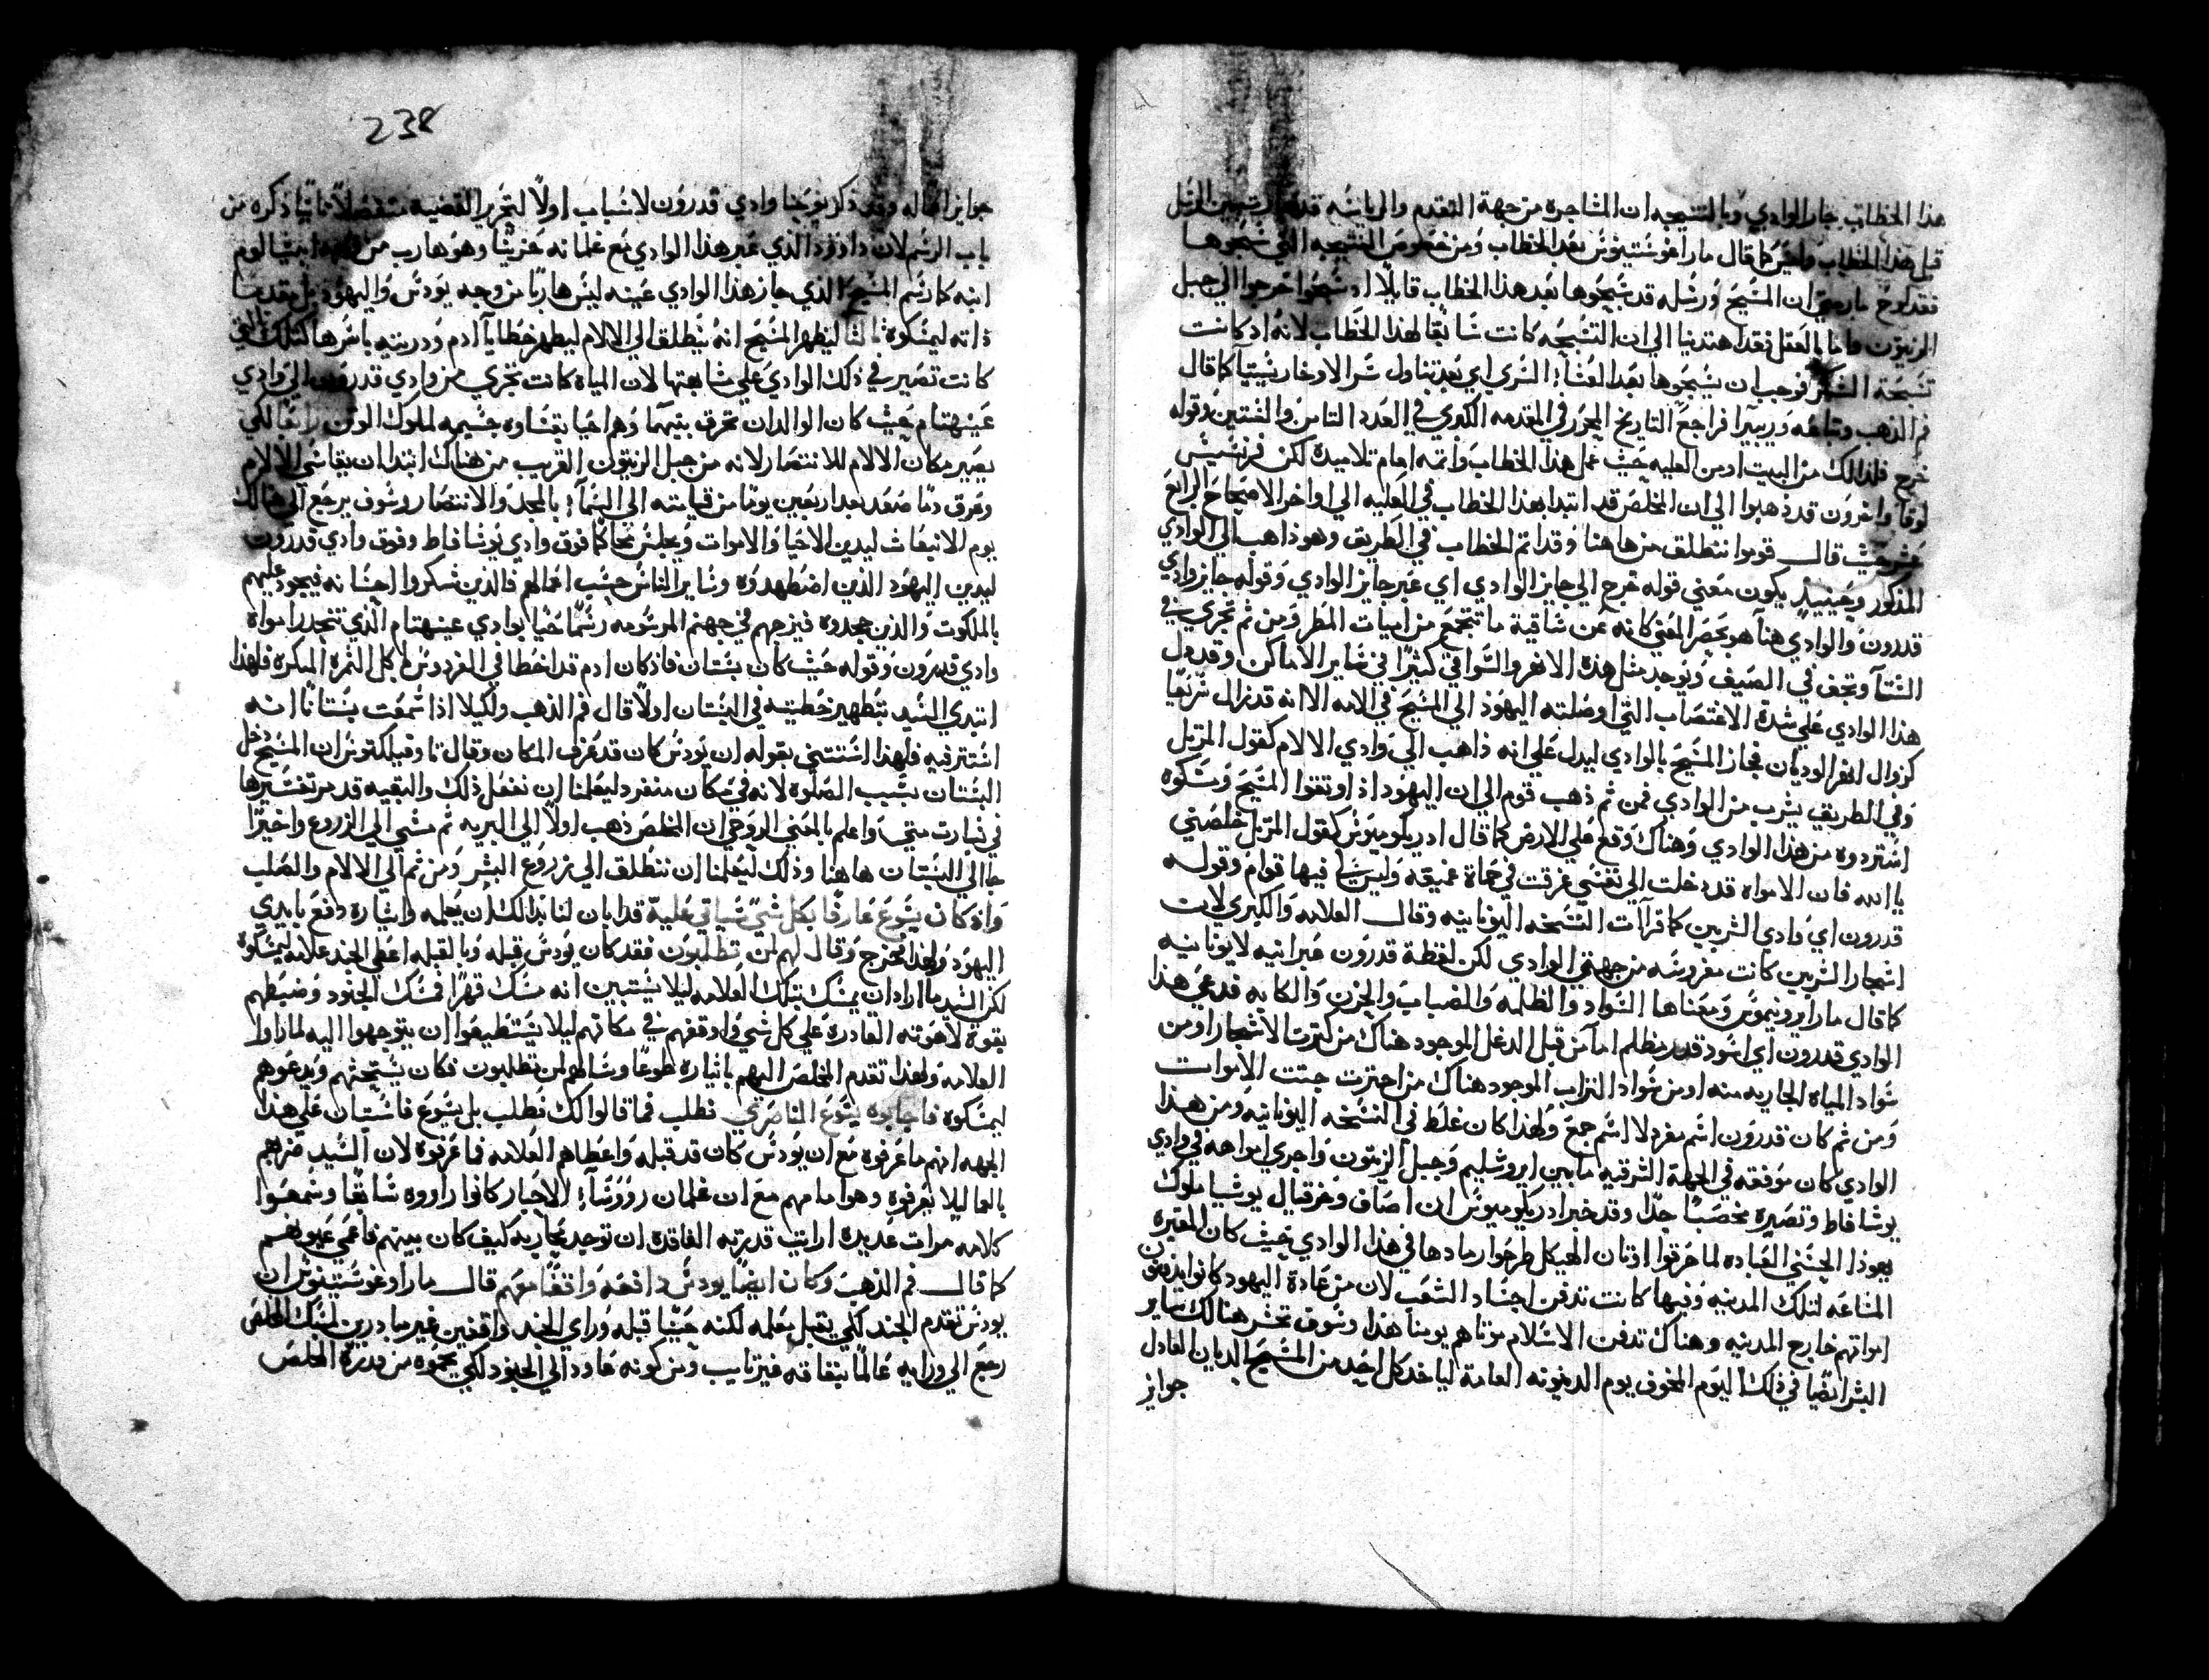 هذا الخطاب جاز الوادي وبالتسبحه ان المشاجره من جهة التقدم والرياسه قد بين الرسل
قبل هذا الخطاب كما قال مار اغوستينوس بعد الخطاب ومن خصوص التسبحه التي سبحوها
فقد لوح مار متي ان المسيح ورسله قد سبحوها بعد هذا الخطاب قايلاً اد سبحوا خرجوا الي جبل
الزيتون واما بالعقل فقد اهتدينا الي ان التسبحه كانت سابقا لهذا الخطاب لانه اد كانت
تسبحة الشكر فوجب ان يسبحوها بعد العشاء السري اي بعد تناول سر الاوخارستيا كما قال
فم الذهب وتباعه وريبيرا فراجع التاريخ المحرر في المقدمه الكبري في العدد الثامن والستين وقوله
خرج فلذالك من البيت اد من العليه حيث عمل هذا الخطاب واتمه امام تلاميذه لكن فرنسيس
لوقا واخرون قد ذهبوا الي ان المخلص قد ابتدا بهذا الخطاب في العليه الي اواخر الاصحاح الرابع
عشر حيث قال قوموا ننطلق من هاهنا وقد اتم الخطاب في الطريق وهو ذاهب الي الوادي
المذكور وحينيدٍ يكون معني قوله خرج الي جايز الوادي اي عبر جايز الوادي وقوله جايز وادي
قدرون والوادي هنا هو بحصر المعني كانه عن ساقية ما تتجمع من اميات المطر ومن ثم تجري في
الشتآ وتجف في الصيف ويوجد مثل هذه الانهر والسواقي كثيرًا في ساير الاماكن وقد دل
هذا الوادي علي شدة الاغتصاب التي اوصلته اليهود الي المسيح في الامه الا انه قد زال سريعًا
كزوال انهر الوديان فجاز المسيح بالوادي ليدل علي انه ذاهب الي وادي الالام كقول المرتل
وفي الطريق يشرب من الوادي فمن ثم ذهب قوم الي ان اليهود اذ اوتقوا المسيح ومسكوه
استردوه من هذا الوادي وهناك وقع علي الارض كما قال ادريكوميوس كقول المرتل خلصني
يا الله فان الامواه قد دخلت الي نفسي غرقت في حماة عميقه وليس لي فيها قوام وقوله
قدرون اي وادي الشربين كما قرات النسخه اليونانيه وقال العلامه والكبري لانت
اشجار الشربين كانت مغروسه من جهتي الوادي لكن لفظة قدرون عبرانيه لا يونانيه
كما قال مار ايرونيموس ومعناها السواد والظلمه والضباب والحزن والكابه فدعي هذا
الوادي قدرون اي اسود قدر مظلم اما من قبل الدغل الموجود هناك من كثرت الاشجار او من
سواد المياه الجاريه منه او من سواد التراب الموجود هناك من احترت جثت الاموات
ومن ثم كان قدرون اسم مفرد لا اسم جمع ولهذا كان غلط في النسخه اليونانيه ومن هذا
الوادي كان موفقعه في الجهة الشرقيه ما بين ايروشليم وجبل الزيتون واجري امواهه في وادي
يوشافاط وتصيره مخصبًا جدًا وقد خبر ادريكوميوس ان اصاف وحزقيال يوشيا ملوك
يهوذا الحسني العباده لما حرقوا اوتان الهيكل طرحوا رمادها في هذا الوادي حيث كان المقبره
المشاعه لتلك المدينه وفيها كانت تدفن اجساد الشعب لان من عادة اليهود كانوا يدفنون
امواتهم خارج المدينه وهناك تدفن الاسلام موتاهم يومنا هذا وسوف تحشر هنالك ساير
البشر ايضًا في ذلك اليوم المخوف يوم الدينونه العامة لياخد كل احد من المسيح الديان العادل
جوايز
238
جوايز اعماله وقد ذكر يوحنا وادي قدرون لاسباب اولاً لتحرير القضيه مفصلاً ثانيًا ذكره من
باب الرسم لان داوود الذي عبر هذا الوادي مع غلمانه حزينًا وهو هارب من ابيشالوم
ابنه كان رسم المسيح الذي جاز هذا الوادي عينه ليس هاربًا من وجه يودس واليهود بل مقدمًا
ذاته ليمسكوه ثالثًا ليظهر المسيح انه ينطلق الي الالام ليطهر خطايآ ادم ودريته باسرها كتلك التي
كانت تصير في ذلك الوادي علي مشابهتها لان المياه كانت تجري من وادي قدرون الي وادي
عينهنام حيث كان الوالدان تحرق بنيهما وهم احيا بقساوه جسيمه لملوك الوثن رابعًا لكي
يصير مكان الالام للانتصار لانه من جبل الزيتون القريب من هناك ابتدا ان يقاسي الالام
وعرق دمًا صعد بعد اربعين يومًا من قيامته الي السمآء بالمجد والانتصار وسوف يرجع الي هنالك
يوم الانبعاث ليدين الاحيا والاموات ويجلس محاكمًا فوق وادي يوشافاط وفوق وادي قدرون
ليدين اليهود الذين اضطهدوه وساير الناس حسب اعمالهم فالذين شكروا احسانه فيجود عليهم
بالملكوت والذين جحدوه فيزجهم في جهنم المرسومه رسمًا حيا بوادي عينهنام الذي تنحدر امواه
وادي قدرون وقوله حيث كان بستان فاذ كان ادم قد اخطا في الفردوس باكل الثمره المنكره فلهذا
ابتدي السيد بتطهير خطيته في البستان اولاً قال فم الذهب ولكيلا اذا سمعت بستانًا انه
استتر فيه فلهذا استتني بقوله ان يودس كان قد عرف المكان وقال ثاوفيلكتوس ان المسيح دخل
البستان بسبب الصلوه لانه في مكان منفرد ليعلمنا ان نفعل ذلك والبقيه قد مر تفسيرها
في بشارت متي واعلم بالمعني الروحي ان المخلص ذهب اولاً الي البريه ثم مشي الي الزروع واخيرًا
جا الي البستان هاهنا وذلك ليعلمنا ان ننطلق الي زروع البشر ومن ثم الي الالام والصلب
واذ كان يسوع عارفًا بكل شيٍ سياتي عليه قد ابان لنا بذالك ان بعلمه وايثاره دفع بايدي
اليهود ولهذا فخرج وقال لهم لمن تطلبون فقد كان يودس قبله وبالقبله اعطي الجند علامه ليمسكوه
لكن السيد ما اراد ان يمسك بتلك العلامه ليلا يستبين انه مسك قهرًا فمسك الجنود وضبطهم
بقوة لاهوته القادره علي كل شي واوقفهم في مكانهم ليلا يستطيعوا ان يتوجهوا اليه لما راوا
العلامه ولهذا تقدم المخلص اليهم باختياره طوعًا وسالهم لمن تطلبون فكان يستحتهم ويدعوهم
ليمسكوه فاجابوه يسوع الناصري نطلب فما قالوا لك نطلب بل يسوع فاستبان علي هذا
الجهه انهم ما عرفوه مع ان يودس كان قد قبله واعطاهم العلامه فما عرفوه لان السيد ضربهم
بالعما ليلا يعرفوه وهو امامهم مع ان غلمان روُوسآء الاحبار كانوا راووه سابقًا وسمعوا
كلامه مرات عديده ارايت قدرته الفاقده ان توجد محاربه كيف كان بينهم فاعمي عيونهم
كما قال فم الذهب وكان ايضًا يودس دافعه واقفًا معهم قال مار اوغوستينوس ان
يودس تقدم الجند لكي يقبل معلمه لكنه حينما قبله وراي الجند واقفين غير مبادرين لمسك المخلص
رجع الي ورايه عالمًا بنفاقه غير تايب ومن كونه عاود الي الجنود لكي يحموه من قدرة المخلص